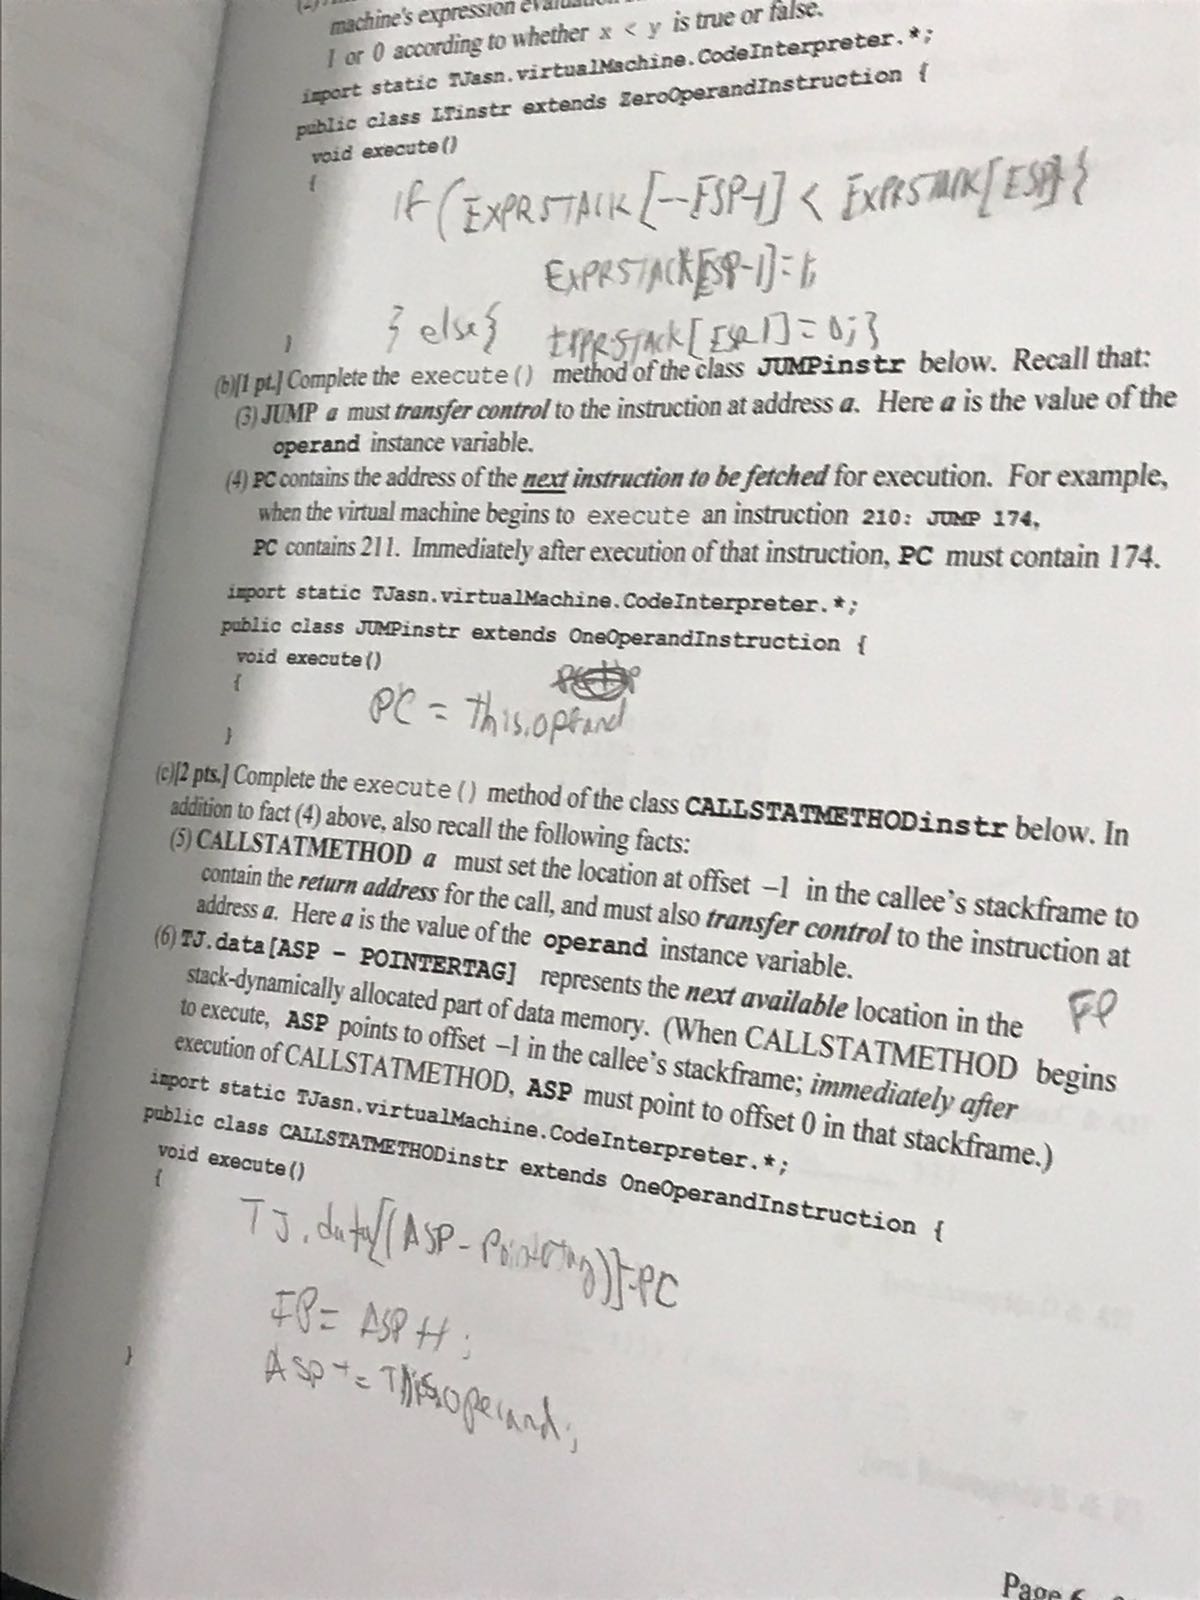 machine's expression
1 or 0 according to whether x < y is true or false.
import static TJasn.virtualMachine.CodeInterpreter.*;
public class LTinstr extends ZeroOperandInstruction {
void execute()
{
if (EXPRSTACK[--ESP-1] < EXPRSTACK[ESP]) {
EXPRSTACK[ESP-1]=1;
} else { EXPRSTACK[ESP-1]=0; }
}
(b)[1 pt.] Complete the execute() method of the class JUMPinstr below. Recall that:
(3) JUMP a must transfer control to the instruction at address a. Here a is the value of the
operand instance variable.
(4) PC contains the address of the next instruction to be fetched for execution. For example,
when the virtual machine begins to execute an instruction 210: JUMP 174,
PC contains 211. Immediately after execution of that instruction, PC must contain 174.
import static TJasn.virtualMachine.CodeInterpreter.*;
public class JUMPinstr extends OneOperandInstruction {
void execute()
{
PC = this.operand
}
(c)[2 pts.] Complete the execute() method of the class CALLSTATMETHODinstr below. In
addition to fact (4) above, also recall the following facts:
(5) CALLSTATMETHOD a must set the location at offset –1 in the callee's stackframe to
contain the return address for the call, and must also transfer control to the instruction at
address a. Here a is the value of the operand instance variable.
(6) TJ.data[ASP - POINTERTAG] represents the next available location in the
FP
stack-dynamically allocated part of data memory. (When CALLSTATMETHOD begins
to execute, ASP points to offset –1 in the callee's stackframe; immediately after
execution of CALLSTATMETHOD, ASP must point to offset 0 in that stackframe.)
import static TJasn.virtualMachine.CodeInterpreter.*;
public class CALLSTATMETHODinstr extends OneOperandInstruction {
void execute()
{
TJ.data[(ASP-Pointertag)]=PC
FP= ASP++;
ASP += This.operand;
}
Page 6